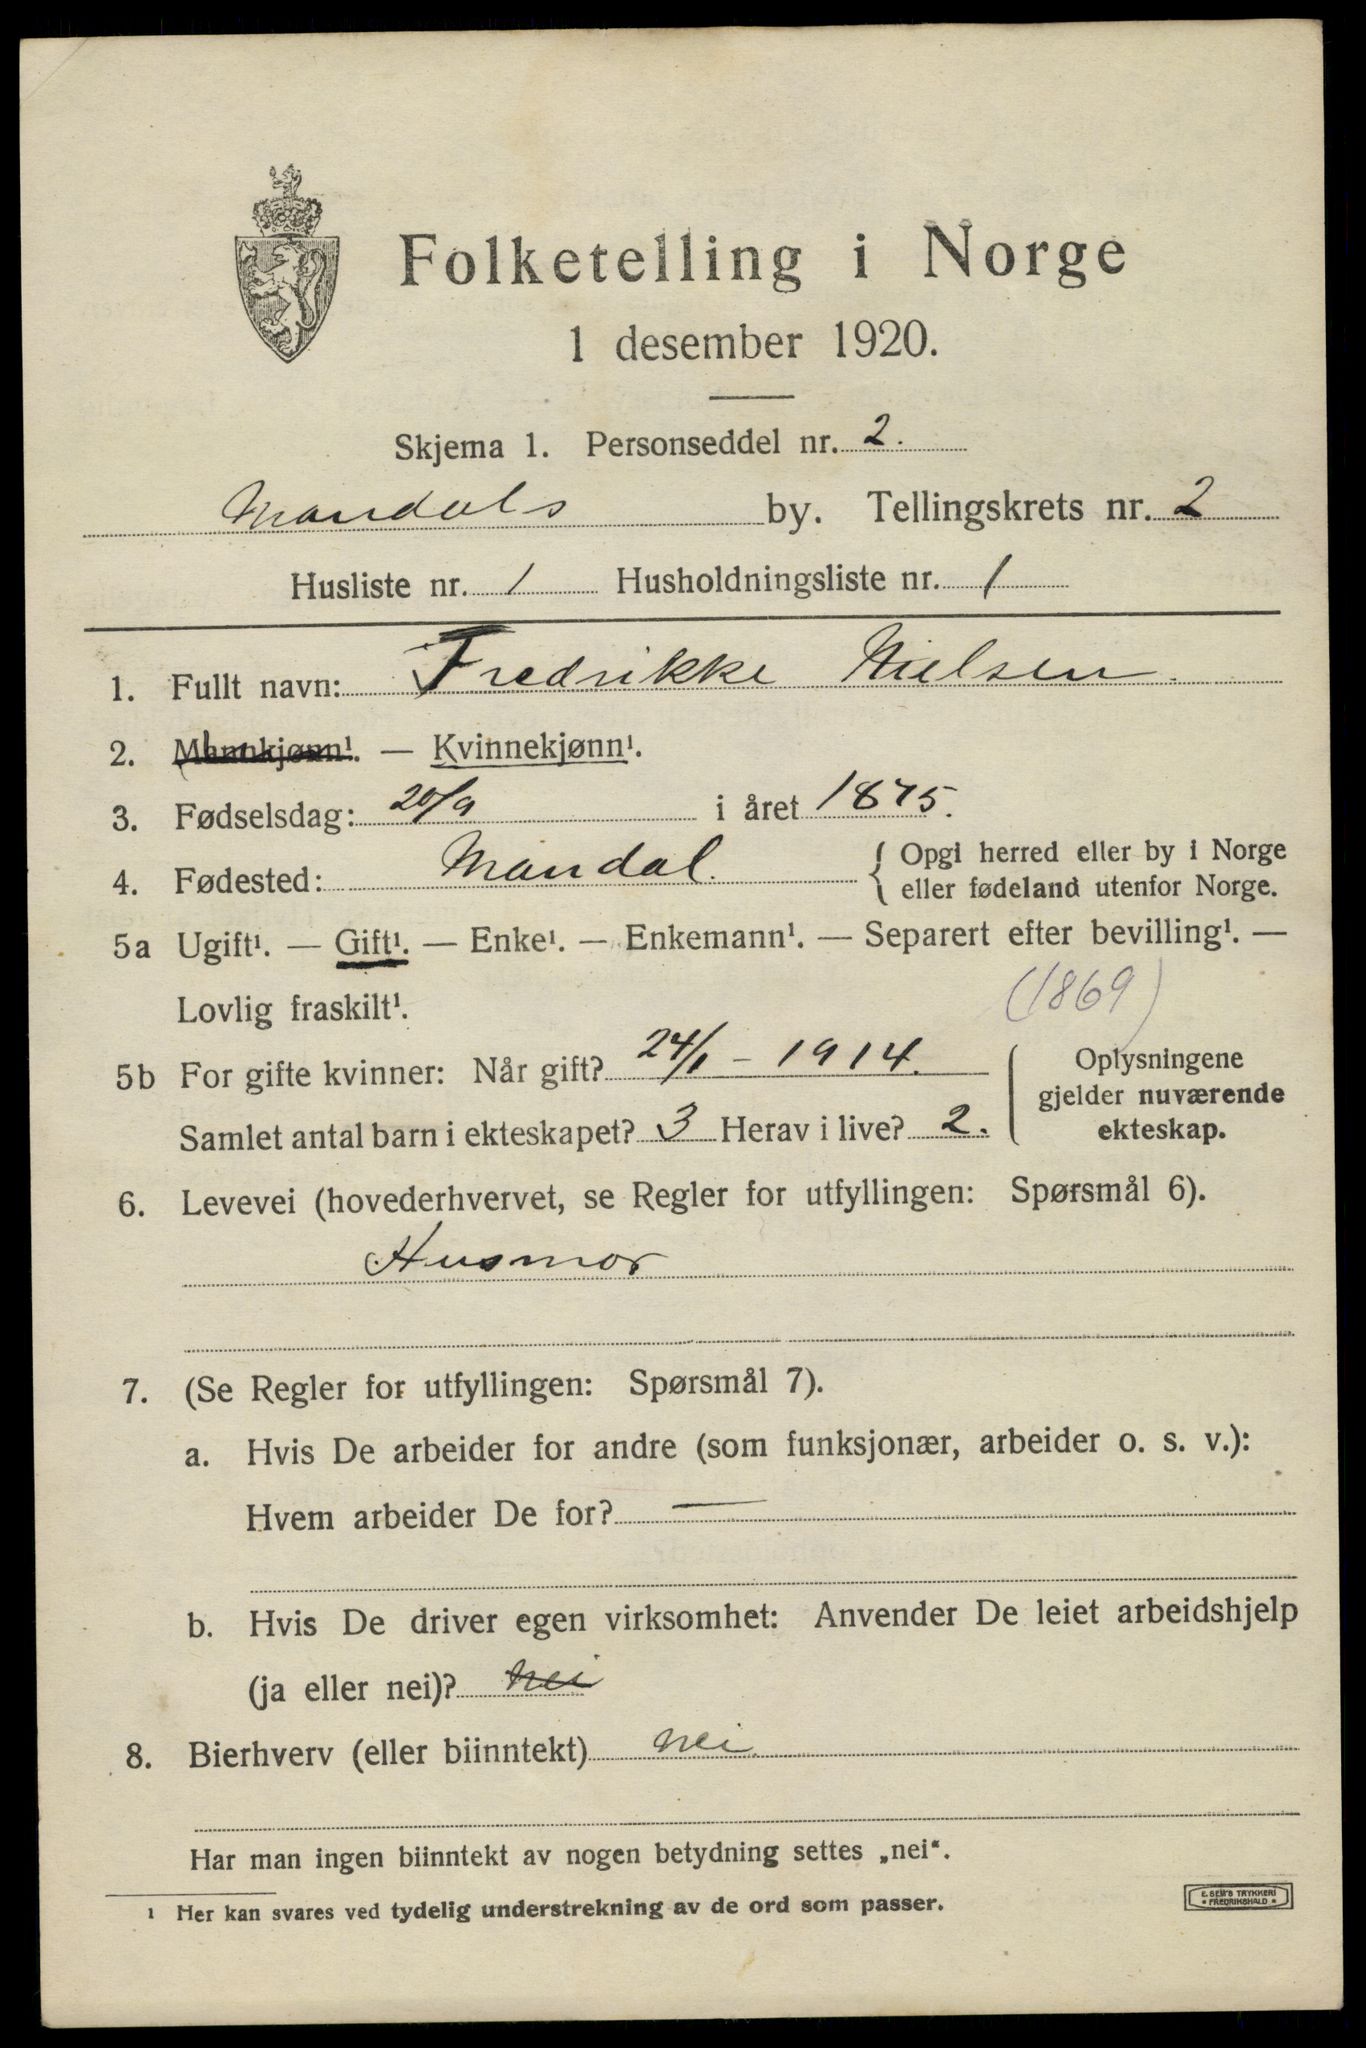 Folketelling i Norge
1 desember 1920.
Skjema 1. Personseddel nr. 2.
Mandals by. Tellingskrets nr. 2
Husliste nr. 1 Husholdningsliste nr. 1
1. Fullt navn: Fredrikke Nielsen.
2. Mannkjønn¹. — Kvinnekjønn¹.
3. Fødselsdag: 20/9 i året 1875.
4. Fødested: Mandal. { Opgi herred eller by i Norge
eller fødeland utenfor Norge.
5a Ugift¹. — Gift¹. — Enke¹. — Enkemann¹. — Separert efter bevilling¹. —
Lovlig fraskilt¹.
(1869)
5b For gifte kvinner: Når gift? 24/1 - 1914.
Samlet antal barn i ekteskapet? 3 Herav i live? 2.
Oplysningene
gjelder nuværende
ekteskap.
6. Levevei (hovederhvervet, se Regler for utfyllingen: Spørsmål 6).
Husmor
7. (Se Regler for utfyllingen: Spørsmål 7).
a. Hvis De arbeider for andre (som funksjonær, arbeider o. s. v.):
Hvem arbeider De for? —
b. Hvis De driver egen virksomhet: Anvender De leiet arbeidshjelp
(ja eller nei)? nei
8. Bierhverv (eller biinntekt) nei.
Har man ingen biinntekt av nogen betydning settes „nei“.
¹ Her kan svares ved tydelig understrekning av de ord som passer.
E. SEM'S TRYKKERI
* FREDRIKSHALD *